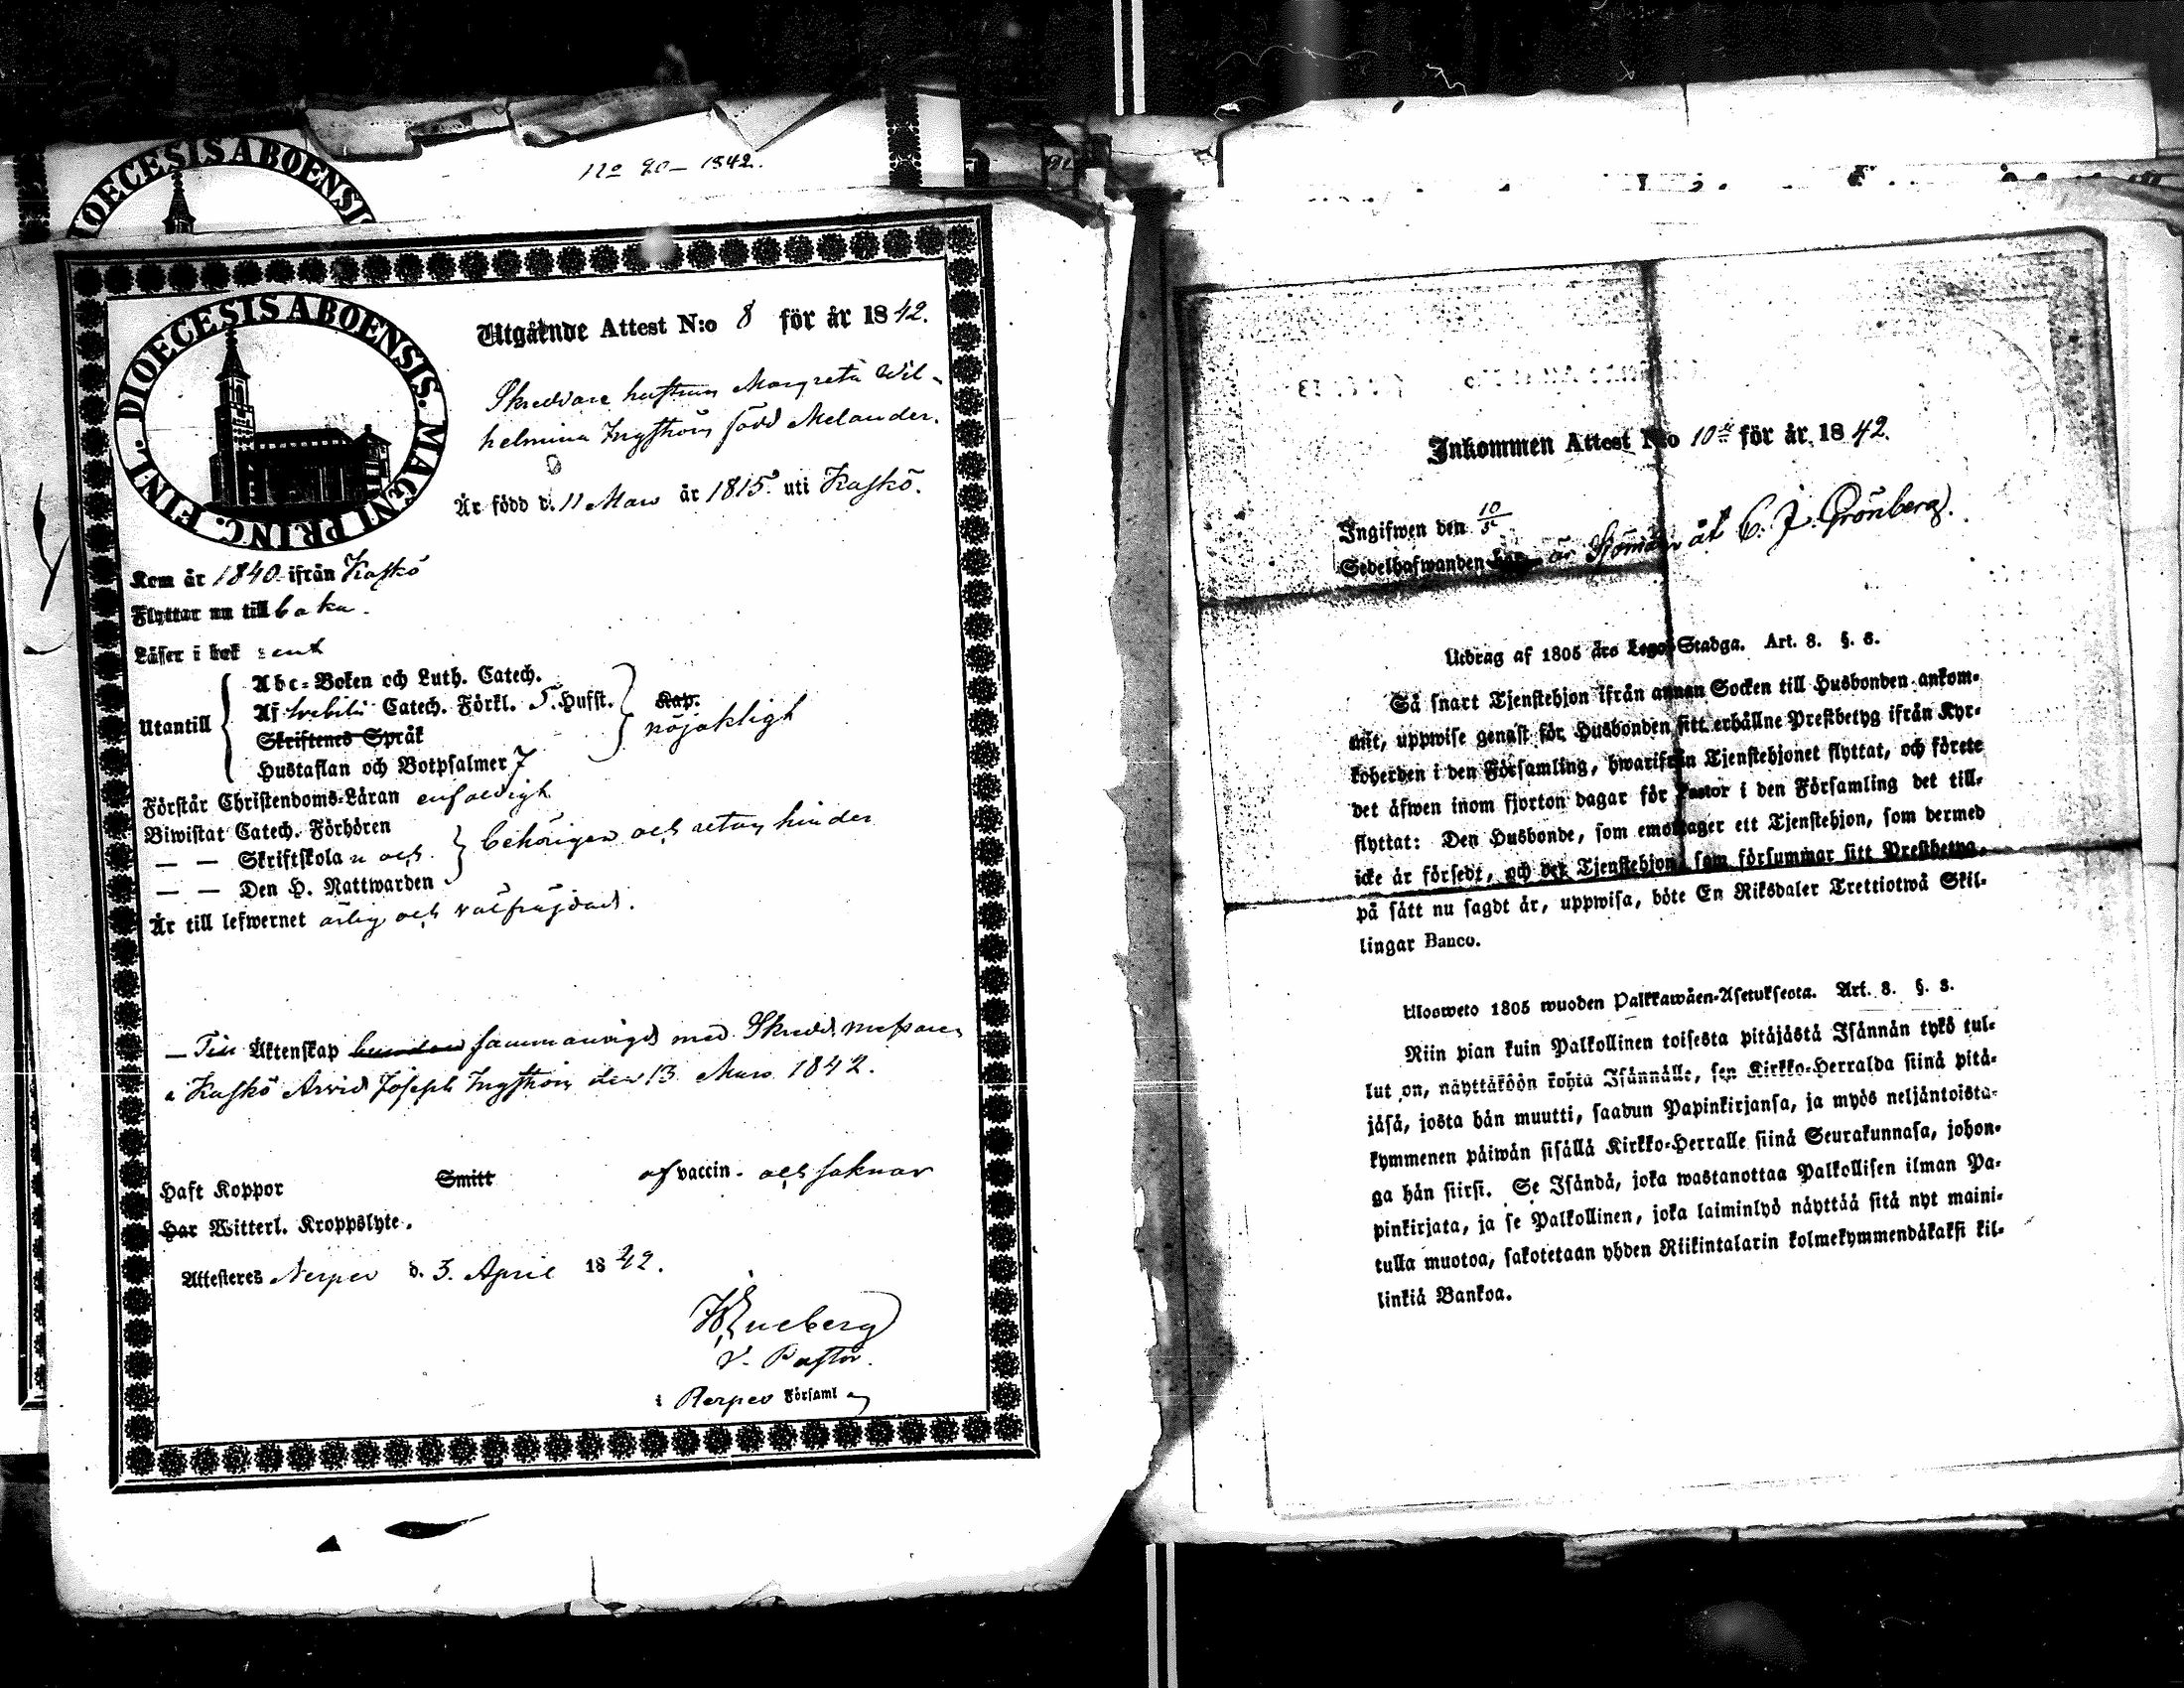 DIOECESIS ABOENSIS
No 20 – 1842.
DIOECESIS ABOENSIS. MAGNI PRINC. FINL.
Utgående Attest N:o 8 för år 1842.
Skreddare hustrun Margreta Wil-
helmina Ingström född Melander.
Är född d. 11 Mars år 1815 uti Kaskö.
Kom år 1840 ifrån Kaskö
Flyttar nu tillbaka.
Läser i bok rent
Utantill
Abc-Boken och Luth. Catech.
Af Svebilii Catech. Förkl. 5. Hufst.
Skriftenes Språk
Hustaflan och Botpsalmer 7
Kap.
nöjaktligt
Förstår Christendoms-Läran enfaldigt
Biwistat Catech. Förhören
— — Skriftskolan och
— — Den H. Nattwarden
behörigen och utan hinder
Är till lefwernet ärlig och välfrejdad.
— Till Äktenskap sammanvigd med Skredd. mästaren
i Kaskö Arvid Joseph Ingström den 13 Mars 1842.
Haft Koppor Smitt af vaccin. och saknar
Har Witterl. Kroppslyte.
Attesteras Nerpes d. 3. April 1842.
v. Pastor.
i Nerpes Församl
Inkommen Attest N:o 10 för år 1842.
Ingifwen den 10/5
Sedelhafwanden är Sjöman åt C. J. Grönberg.
Utdrag af 1805 års Lego-Stadga. Art. 8. §. 8.
Så snart Tjenstehjon ifrån annan Socken till Husbonden ankom-
mit, uppwise genast för Husbonden sitt erhållne Prestbetyg ifrån Kyr-
koherden i den Församling, hwarifrån Tjenstehjonet flyttat, och förete
det äfwen inom fjorton dagar för Pastor i den Församling det till-
flyttat: Den Husbonde, som emottager ett Tjenstehjon, som dermed
icke är försedt, och det Tjenstehjon, som försummar sitt Prestbetyg,
på sätt nu sagdt är, uppwisa, böte En Riksdaler Trettiotwå Skil-
lingar Banco.
Ulosweto 1805 wuoden Palkkawäen-Asetuksesta. Art. 8. §. 8.
Niin pian kuin Palkollinen toisesta pitäjästä Isännän tykö tul-
lut on, näyttäköön kohta Isännälle, sen Kirkko-Herralda siinä pitä-
jäsä, josta hän muutti, saadun Papinkirjansa, ja myös neljäntoista-
kymmenen päiwän sisällä Kirkko-Herralle siinä Seurakunnasa, johon-
ga hän siirsi. Se Isändä, joka wastanottaa Palkollisen ilman Pa-
pinkirjata, ja se Palkollinen, joka laiminlyö näyttää sitä nyt maini-
tulla muotoa, sakotetaan yhden Riikintalarin kolmekymmendäkaksi kil-
linkiä Bankoa.